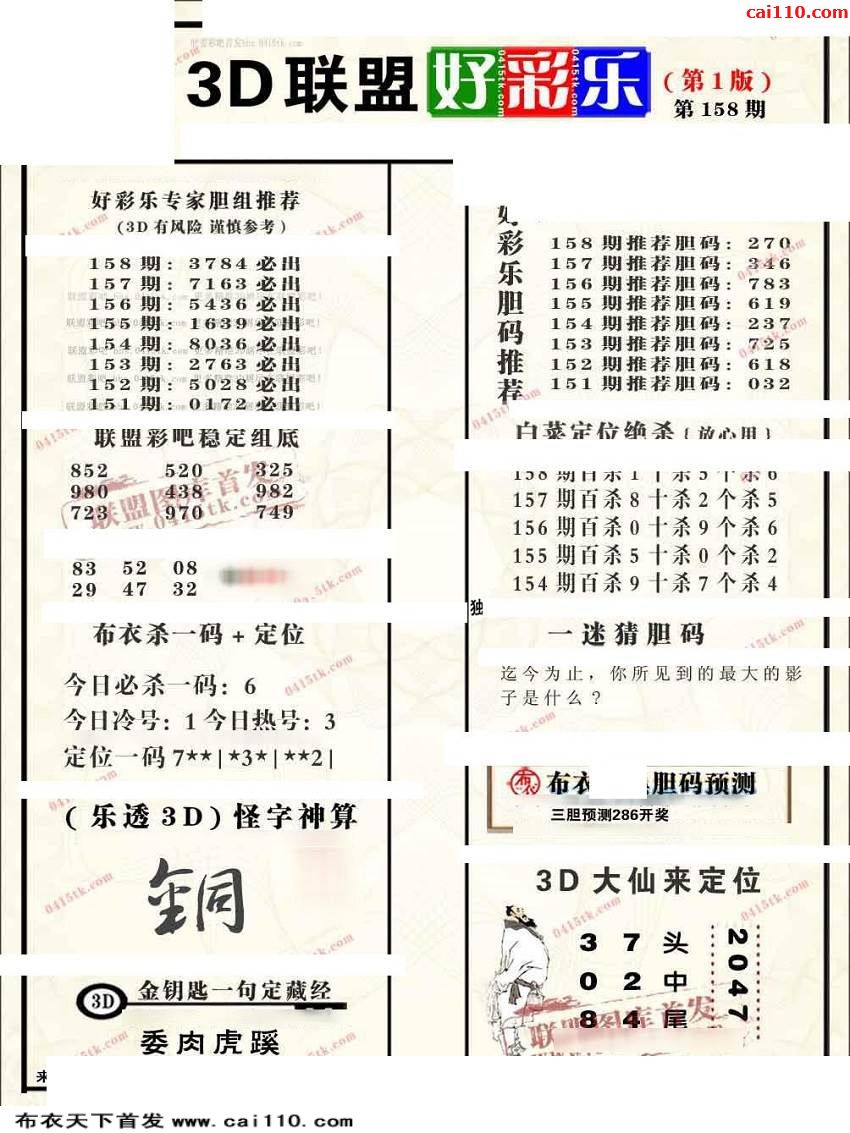 cai110.com
3D联盟好彩乐
(第1版)
第158期
好彩乐专家胆组推荐
(3D有风险 谨慎参考)
158期: 3784必出
157期: 7163必出
156期: 5436必出
155期: 1639必出
154期: 8036必出
153期: 2763必出
152期: 5028必出
151期: 0172必出
联盟彩吧稳定组底
852 520 325
980 438 982
723 970 749
83 52 08
29 47 32
布衣杀一码+定位
今日必杀一码: 6
今日冷号: 1 今日热号: 3
定位一码7**|*3*|**2|
(乐透3D)怪字神算
銅
3D 金钥匙一句定藏经
委肉虎蹊
来
好彩乐胆码推荐
158期推荐胆码: 270
157期推荐胆码: 346
156期推荐胆码: 783
155期推荐胆码: 619
154期推荐胆码: 237
153期推荐胆码: 725
152期推荐胆码: 618
151期推荐胆码: 032
白菜定位绝杀{放心用}
158期百杀1十杀5个杀6
157期百杀8十杀2个杀5
156期百杀0十杀9个杀6
155期百杀5十杀0个杀2
154期百杀9十杀7个杀4
独
一迷猜胆码
迄今为止，你所见到的最大的影
子是什么?
布衣 胆码预测
三胆预测286开奖
3D大仙来定位
3 7 头
0 2 中
8 4 尾
2047
联盟图库首发
www.0415tk.com
布衣天下首发 www.cai110.com